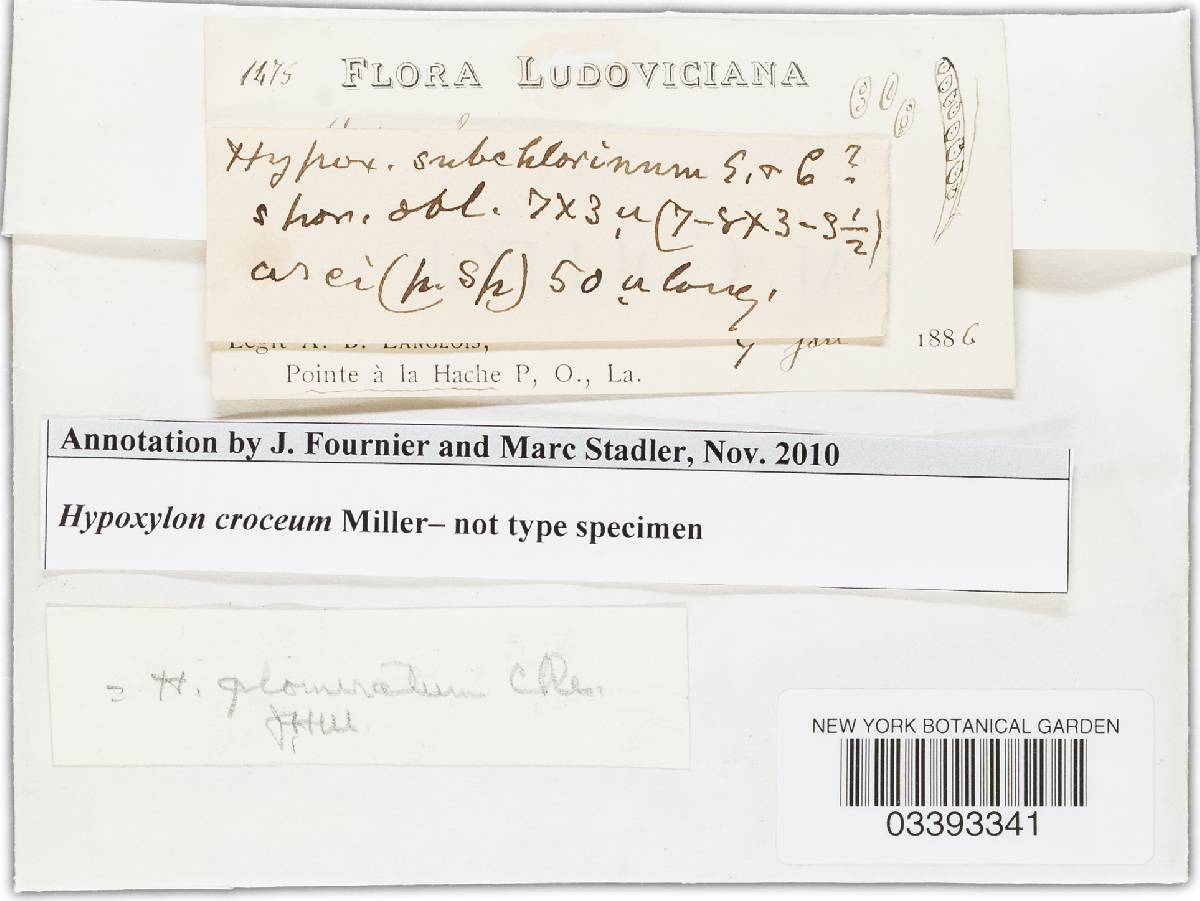 1475 FLORA LUDOVICIANA
Hypox. subchlorinum E. & C ?
spor. obl. 7×3 µ (7-8×3-3½)
asci (p. sp) 50 µ long.
Legit A. B. LANGLOIS,
7 Jan 1886
Pointe à la Hache P, O., La.
Annotation by J. Fournier and Marc Stadler, Nov. 2010
Hypoxylon croceum Miller– not type specimen
= H. glomeratum Cke.
JHM
NEW YORK BOTANICAL GARDEN
03393341